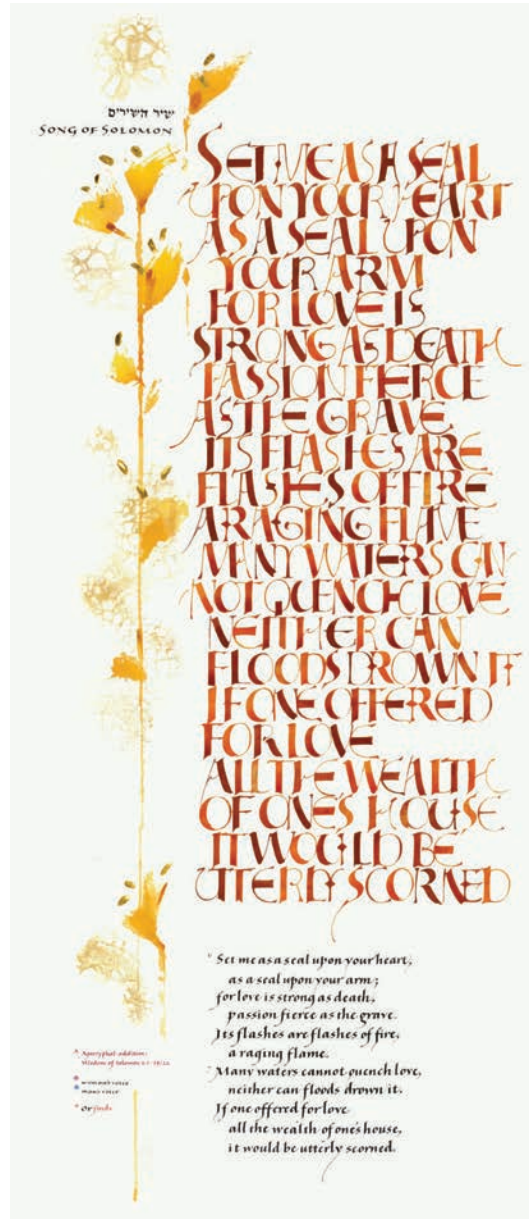 שיר השירים
SONG OF SOLOMON
SET ME AS A SEAL
UPON YOUR HEART
AS A SEAL UPON
YOUR ARM
FOR LOVE IS
STRONG AS DEATH
PASSION FIERCE
AS THE GRAVE
ITS FLASHES ARE
FLASHES OF FIRE
A RAGING FLAME
MANY WATERS CAN
NOT QUENCH LOVE
NEITHER CAN
FLOODS DROWN IT
IF ONE OFFERED
FOR LOVE
ALL THE WEALTH
OF ONES HOUSE
IT WOULD BE
UTTERLY SCORNED
Set me as a seal upon your heart,
as a seal upon your arm;
for love is strong as death,
passion fierce as the grave.
Its flashes are flashes of fire,
a raging flame.
Many waters cannot quench love,
neither can floods drown it.
If one offered for love
all the wealth of one's house,
it would be utterly scorned.
Apocryphal addition:
Wisdom of Solomon
woman's voice
man's voice
Or finds